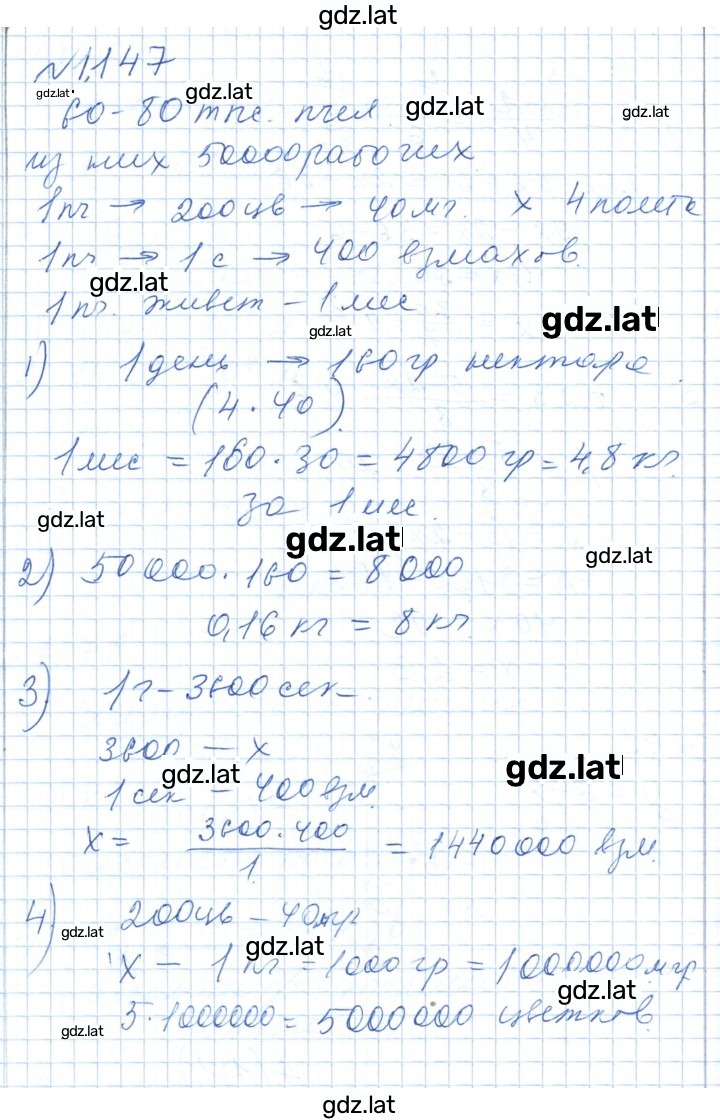 gdz.lat
№1,147
gdz.lat gdz.lat gdz.lat gdz.lat
60-80 тыс. пчел
из них 50000 рабочих
1 пч → 200 цв → 40 мг. х 4 полета
1 пч → 1 с → 400 взмахов.
gdz.lat
1 пч. живет - 1 мес
gdz.lat
gdz.lat
1) 1 день → 160 гр нектара
(4 · 40)
1 мес = 160 · 30 = 4800 гр = 4,8 кг.
за 1 мес.
gdz.lat
gdz.lat
gdz.lat
2) 50 000 · 160 = 8 000
0,16 кг = 8 кг
3) 1 ч - 3600 сек
3600 — х
gdz.lat gdz.lat
1 сек - 400 взм.
х = 3600 · 400 / 1 = 1440 000 взм.
4) 200 цв - 40 мгр
gdz.lat gdz.lat
х — 1 кг = 1000 гр = 1000000 мгр
gdz.lat
5 · 1000000 = 5000 000 цветков
gdz.lat
gdz.lat